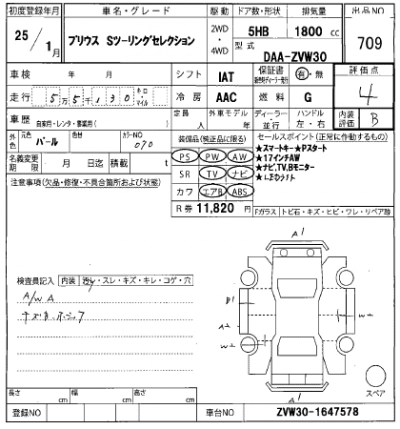 初度登録年月 車名・グレード 駆動 ドア数・形状 排気量 出品NO
25年1月 プリウス Sツーリングセレクション 2WD・4WD 5HB 1800cc 709
型式 DAA-ZVW30
車検 年 月 シフト IAT 保証書 有・無 評価点 4
走行 5万5千130 キロ・マイル 冷房 AAC 燃料 G
車歴 自家用・レンタ・事業用( ) 定員 人 外車モデル 年 ディーラー・並行 ハンドル 左・右 内装評価 B
外色 元色 パール カラーNO 070 装備品(検証品に限る) セールスポイント(正常に作動するもの)
名義変更期限 月 日迄 積載 t
PS PW AW ★スマートキー★Pスタート
★17インチAW
SR TV ナビ ★ナビ,TV,Bモニター
カワ エアB ABS ★LEDライト
注意事項(欠品・修復・不具合箇所および状態)
R券 11,820円
Fガラス トビ石・キズ・ヒビ・ワレ・リペア跡
検査員記入 内装 汚レ・スレ・キズ・キレ・コゲ・穴
A/WA
A1
B1
A2
W2
W2
A1
スペア
長さ cm 幅 cm 高さ cm
登録NO 車台NO ZVW30-1647578